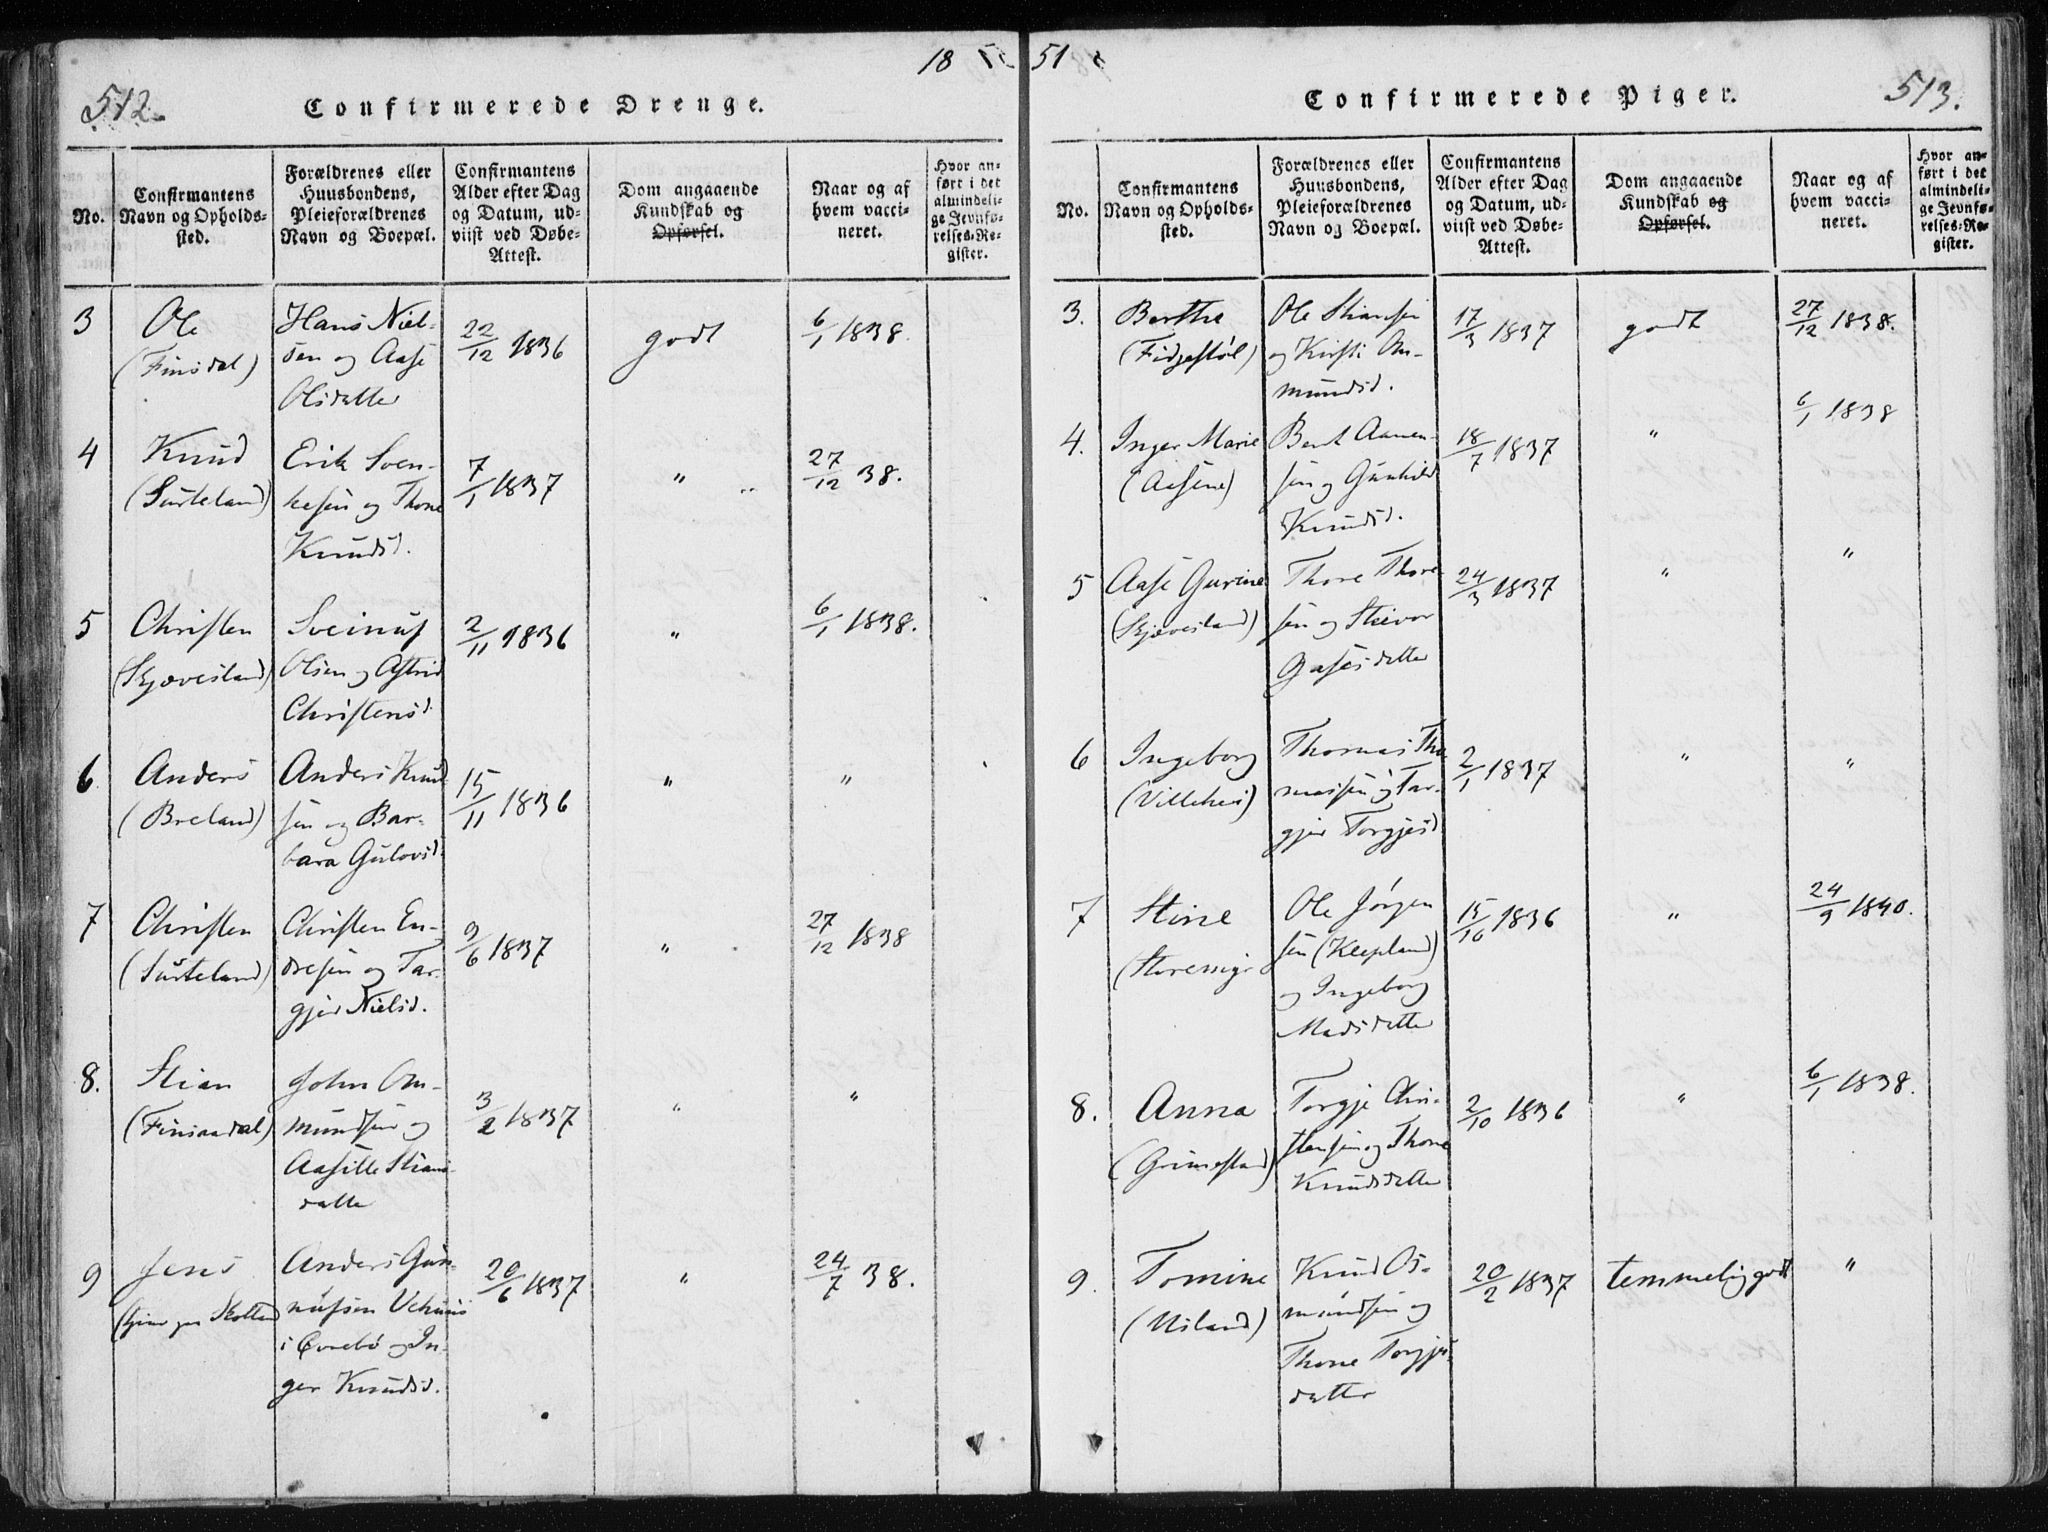 512.
Confirmerede Drenge.
18
No.
Confirmantens
Navn og Opholds-
sted.
Forældrenes eller
Huusbondens,
Pleieforældrenes
Navn og Boepæl.
Confirmantens
Alder efter Dag
og Datum, ud-
viist ved Døbe-
Attest.
Dom angaaende
Kundskab og
Opførsel.
Naar og af
hvem vacci-
neret.
Hvor an-
ført i det
almindeli-
ge Jevnfø-
relses-Re-
gister.
3
Ole
(Finsdal)
Hans Niel-
sen og Aase
Olsdatter
22/12 1836
godt
6/1 1838.
4
Knud
(Surteland)
Erik Sven-
kesen og Thone
Knudsd.
7/1 1837
"
27/12 38.
5
Christen
(Skjævesland)
Sveinuf
Olsen og Astrid
Christensd.
2/11 1836
"
6/1 1838.
6
Anders
(Breland)
Anders Knud
sen og Bar-
bara Gulovsd.
15/11 1836
"
"
7
Christen
(Surteland)
Christen En-
dresen og Tar-
gjer Nielsd.
9/6 1837
"
27/12 1838
8.
Stian
(Finsaadal)
John Om-
mundsen og
Aasille Stians
datter
3/2 1837
"
"
9
Jens
Anders Gun-
nufsen
i og In-
ger Knudsd.
20/6 1837
"
24/7 38.
51
Confirmerede Piger.
513.
No.
Confirmantens
Navn og Opholds-
sted.
Forældrenes eller
Huusbondens,
Pleieforældrenes
Navn og Boepæl.
Confirmantens
Alder efter Dag
og Datum, ud-
viist ved Døbe-
Attest.
Dom angaaende
Kundskab og
Opførsel.
Naar og af
hvem vacci-
neret.
Hvor an-
ført i det
almindeli-
ge Jevnfø-
relses-Re-
gister.
3.
Berthe
(Fidjestøl)
Ole Stiansen
og Kirsti Om-
mundsd.
17/3 1837
godt
27/12 1838.
4.
Inger Marie
(Aasene)
Bent Aanen-
sen og Gunhild
Knudsd.
18/7 1837
"
6/1 1838
5
Aase Gurine
(Skjævesland)
Thore Thore-
sen og Stievor
Gasesdatter
24/3 1837
"
"
6
Ingeborg
Thomas Tho
massen og Tar-
gjer Torgjusd.
2/1 1837
"
"
7
Stine
(Storemyr
Ole Jörgen
sen (Kleepland)
og Ingeborg
Madsdatter
15/10 1836
"
24/9 1840.
8.
Anna
(Grimestad)
Torgje Chri-
stensen og Thone
Knudsdatter
2/10 1836
"
6/1 1838.
9.
Tomine
(Usland)
Knud Os-
mundsen og
Thone Torgjus-
datter
20/2 1837
temmelig godt
"